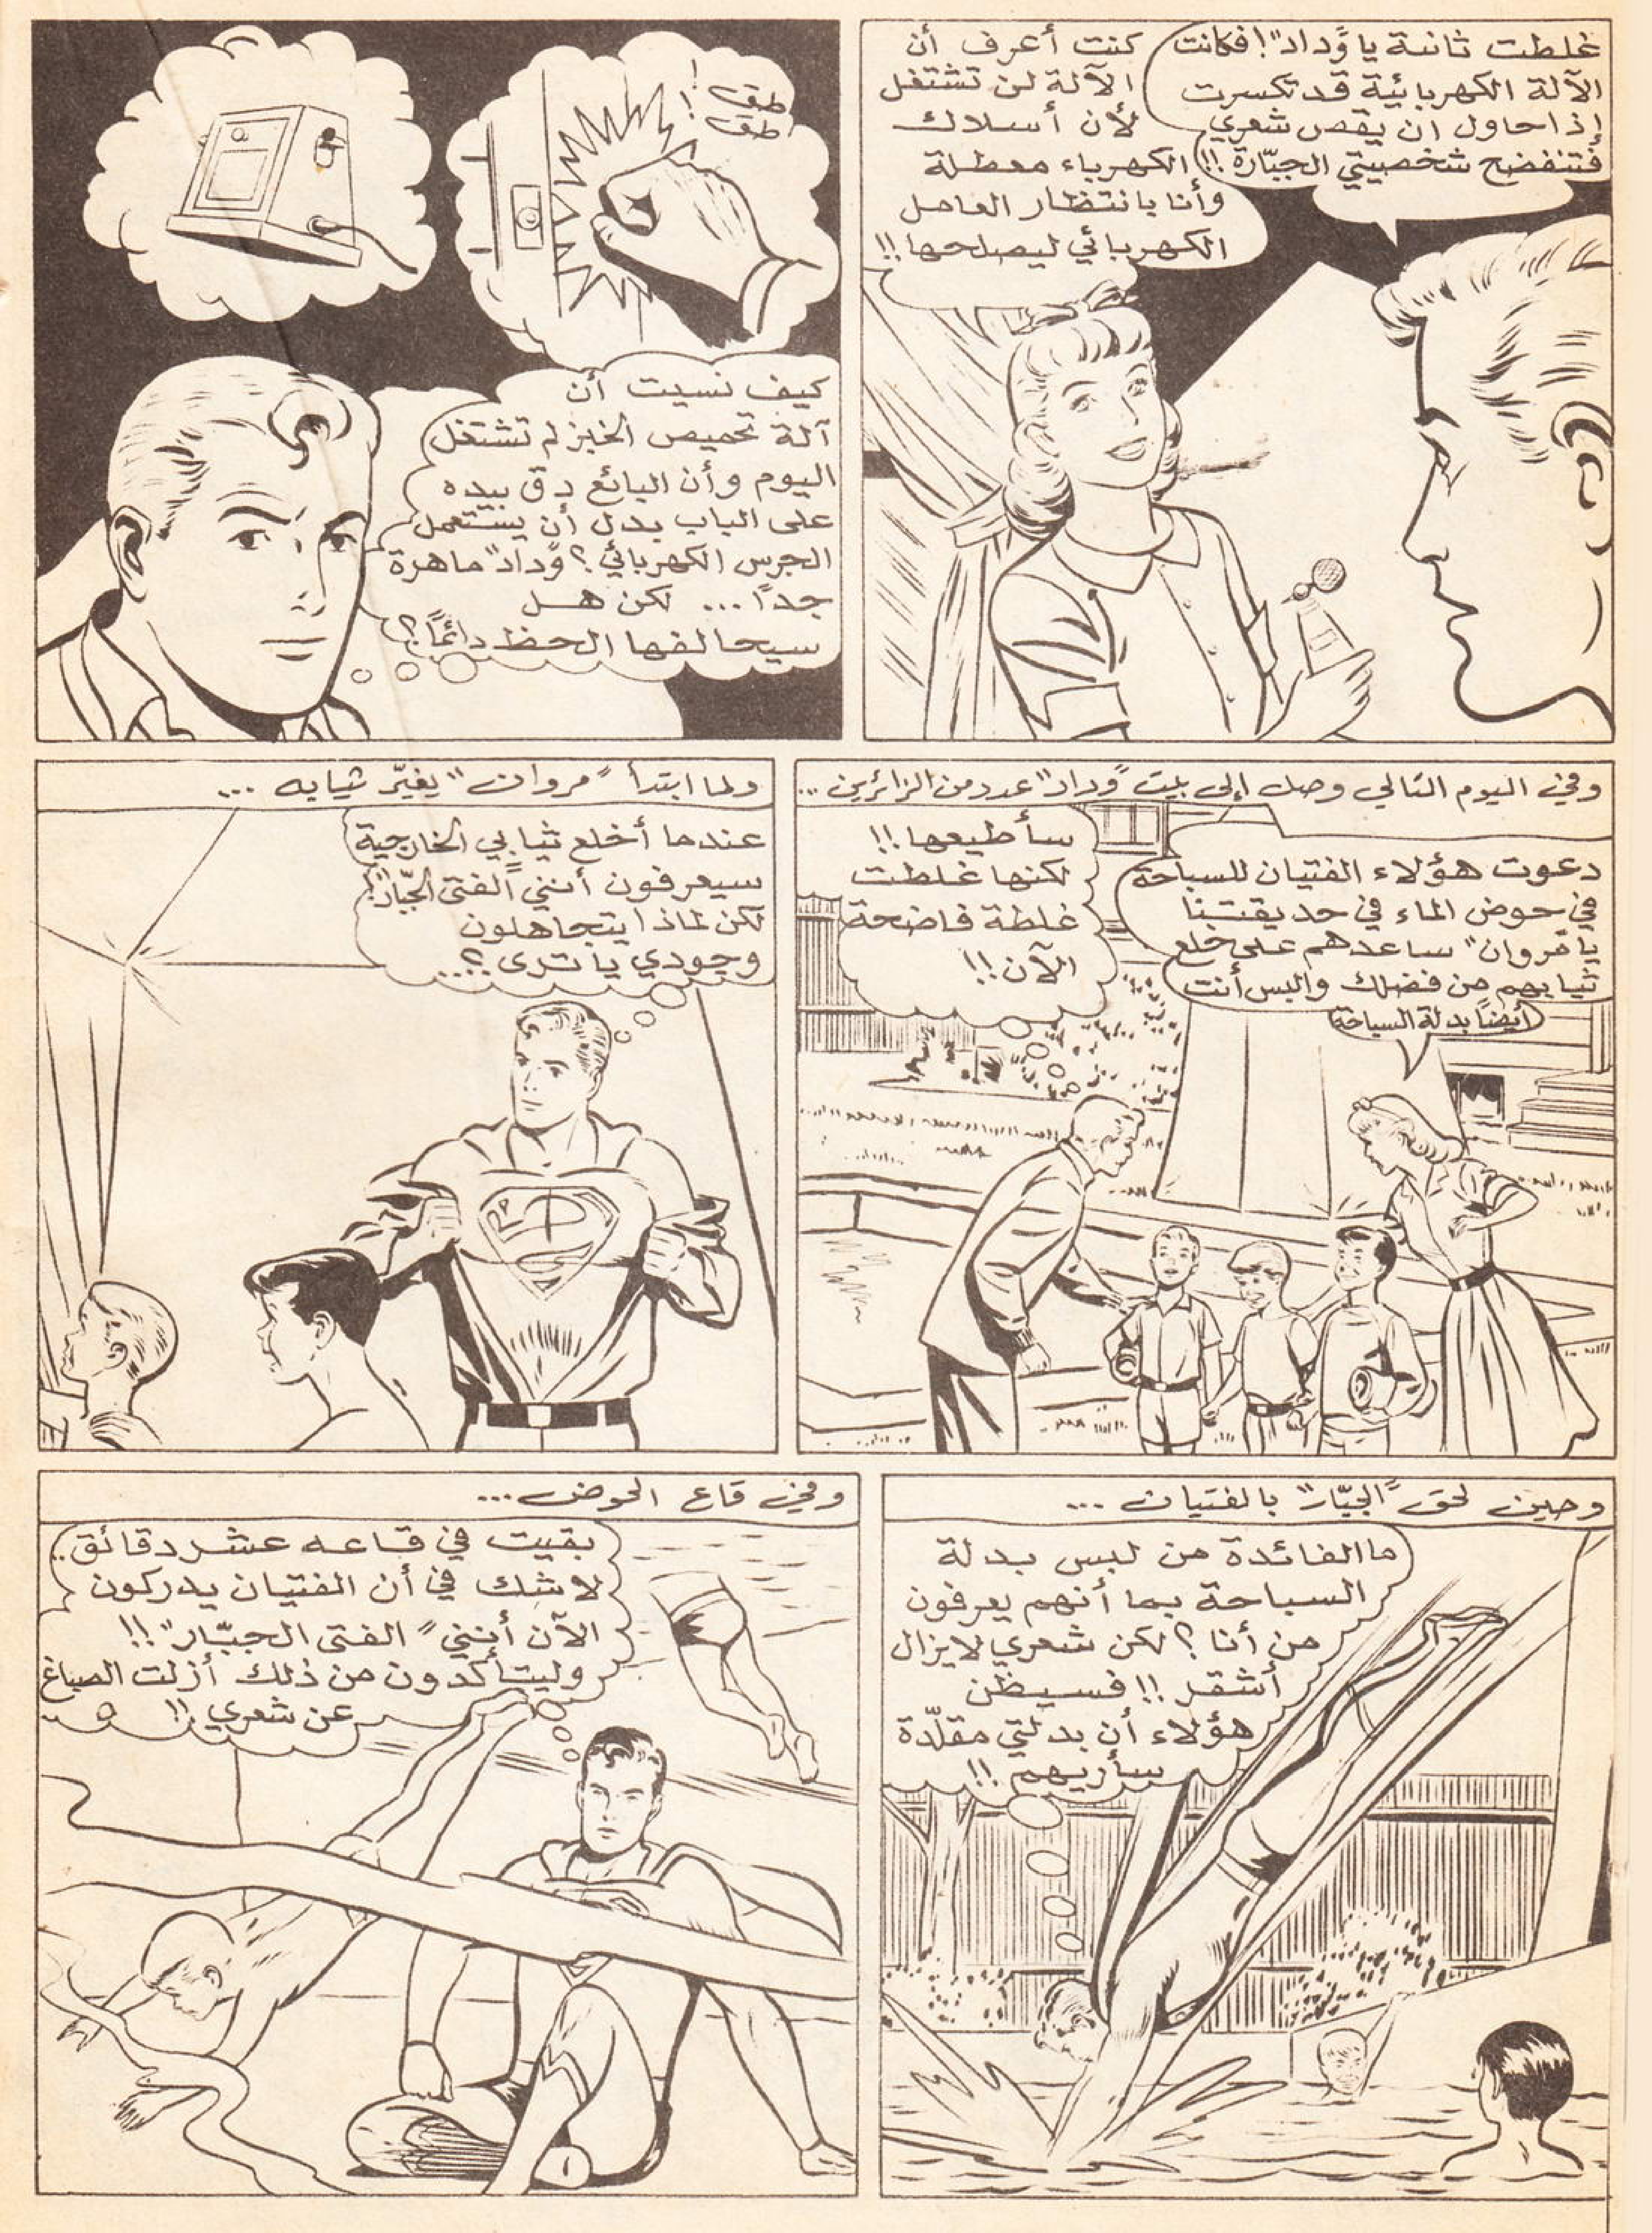 غلطت ثانية يا "وداد"! فكانت
الآلة الكهربائية قد تكسرت
إذا حاول ان يقص شعري
فتنفضح شخصيتي الجبّارة !!
كنت أعرف أن
الآلة لن تشتغل
لأن أسلاك
الكهرباء معطلة
وأنا بانتظار العامل
الكهربائي ليصلحها !!
طق !
طق !
كيف نسيت أن
آلة تحميص الخبز لم تشتغل
اليوم وأن البائع دق بيده
على الباب بدل أن يستعمل
الجرس الكهربائي ؟ "وداد" ماهرة
جداً ... لكن هل
سيحالفها الحظ دائماً ؟
وفي اليوم التالي وصل إلى بيت "وداد" عدد من الزائرين ...
دعوت هؤلاء الفتيان للسباحة
في حوض الماء في حديقتنا
يا "مروان" ساعدهم على خلع
ثيابهم من فضلك والبس أنت
أيضاً بدلة السباحة
سأطيعها !!
لكنها غلطت
غلطة فاضحة
الآن !!
ولما ابتدأ "مروان" يغيّر ثيابه ...
عندما أخلع ثيابي الخارجية
سيعرفون أنني "الفتى الجبّار" !
لكن لماذا يتجاهلون
وجودي يا ترى ؟...
وحين لحق "الجبّار" بالفتيان ...
ما الفائدة من لبس بدلة
السباحة بما أنهم يعرفون
من أنا ؟ لكن شعري لا يزال
أشقر !! فسيظن
هؤلاء أن بدلتي مقلّدة
سأريهم !!
وفي قاع الحوض ...
بقيت في قاعه عشر دقائق ..
لا شك في أن الفتيان يدركون
الآن أنني "الفتى الجبّار" !!
وليتأكدون من ذلك أزلت الصباغ
عن شعري !!